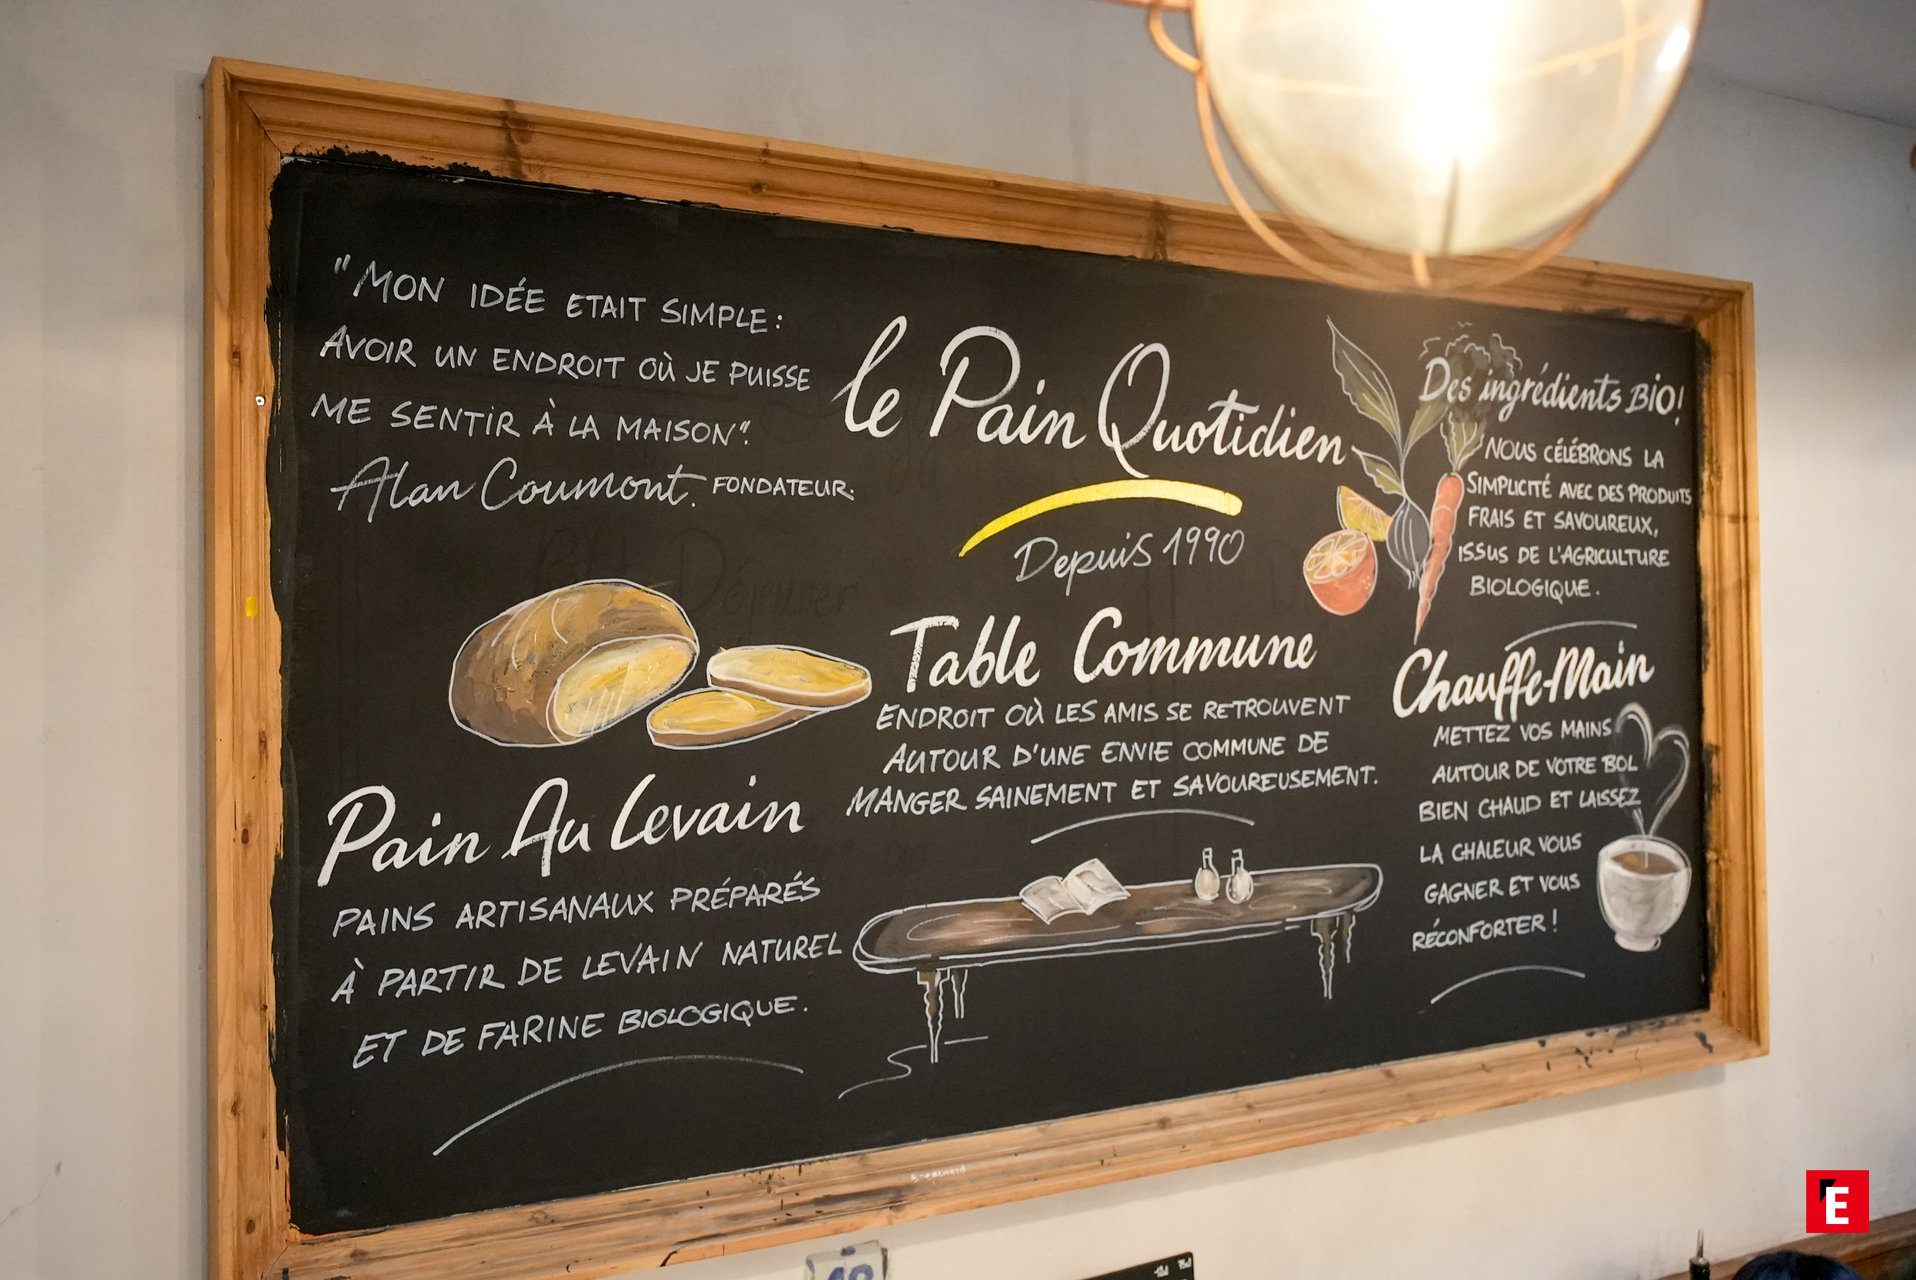 "MON IDÉE ETAIT SIMPLE:
AVOIR UN ENDROIT OÙ JE PUISSE
ME SENTIR À LA MAISON".
Alan Coumont. FONDATEUR.
le Pain Quotidien
Depuis 1990
Des ingrédients BIO!
NOUS CÉLÉBRONS LA
SIMPLICITÉ AVEC DES PRODUITS
FRAIS ET SAVOUREUX,
ISSUS DE L'AGRICULTURE
BIOLOGIQUE.
Table Commune
ENDROIT OÙ LES AMIS SE RETROUVENT
AUTOUR D'UNE ENVIE COMMUNE DE
MANGER SAINEMENT ET SAVOUREUSEMENT.
Chauffe-Main
METTEZ VOS MAINS
AUTOUR DE VOTRE BOL
BIEN CHAUD ET LAISSEZ
LA CHALEUR VOUS
GAGNER ET VOUS
RÉCONFORTER!
Pain Au Levain
PAINS ARTISANAUX PRÉPARÉS
À PARTIR DE LEVAIN NATUREL
ET DE FARINE BIOLOGIQUE.
Déjeuner
E